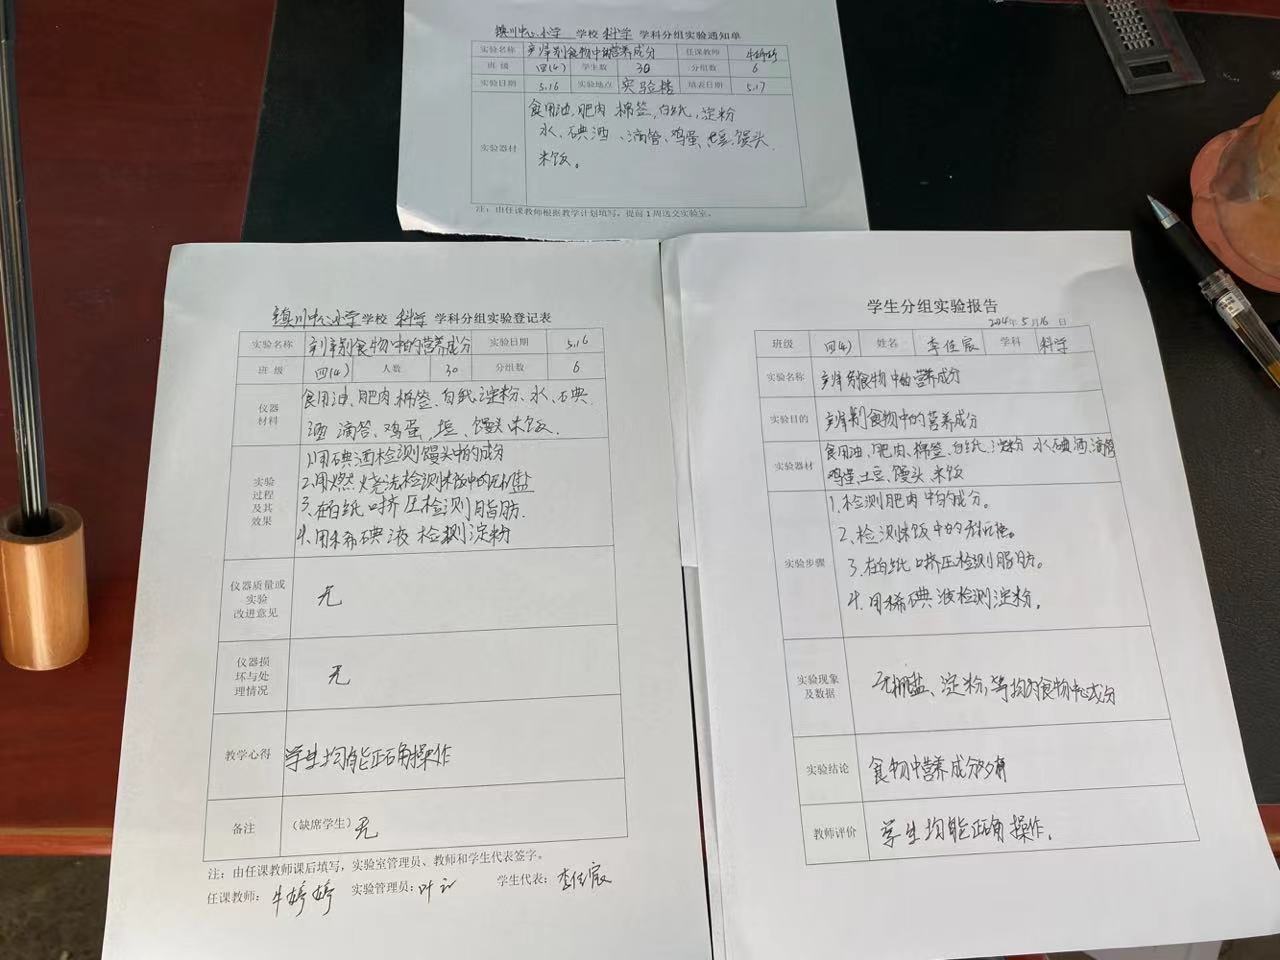 镇川中心小学 学校 科学 学科分组实验通知单
实验名称 辨别食物中的营养成分 任课教师 牛婷婷
班 级 四(4) 学生数 30 分组数 6
实验日期 5.16 实验地点 实验楼 填表日期 5.17
实验器材
食用油,肥肉 棉签,白纸,淀粉
水、碘酒、滴管、鸡蛋、土豆、馒头、
米饭。
注:由任课教师根据教学计划填写,提前1周送交实验室。
镇川中心小学 学校 科学 学科分组实验登记表
实验名称 辨别食物中的营养成分 实验日期 5.16
班 级 四(4) 人数 30 分组数 6
仪器
材料
食用油、肥肉、棉签、白纸、淀粉、水、碘
酒 滴管、鸡蛋、土豆、馒头 米饭.
实验
过程
及其
效果
1.用碘酒检测馒头中的成分
2.用燃烧法检测米饭中的无机盐
3.在白纸上挤压检测脂肪.
4.用稀碘液检测淀粉
仪器质量或
实验
改进意见
无
仪器损
坏与处
理情况
无
教学心得 学生均能正确操作
备注 (缺席学生) 无
注:由任课教师课后填写,实验室管理员、教师和学生代表签字。
任课教师: 牛婷婷 实验管理员: 叶 学生代表: 李佳宸
学生分组实验报告
2024年5月16日
班级 四(4) 姓名 李佳宸 学科 科学
实验名称 辨别食物中的营养成分
实验目的 辨别食物中的营养成分
实验器材
食用油、肥肉、棉签、白纸、淀粉 水 碘酒、滴管
鸡蛋、土豆、馒头、米饭
实验步骤
1.检测肥肉中的成分。
2.检测米饭中的无机盐。
3.在白纸上挤压检测脂肪。
4.用稀碘液检测淀粉。
实验现象
及数据
无机盐、淀粉,等均为食物中心成分
实验结论 食物中营养成分
教师评价 学生均能正确操作.